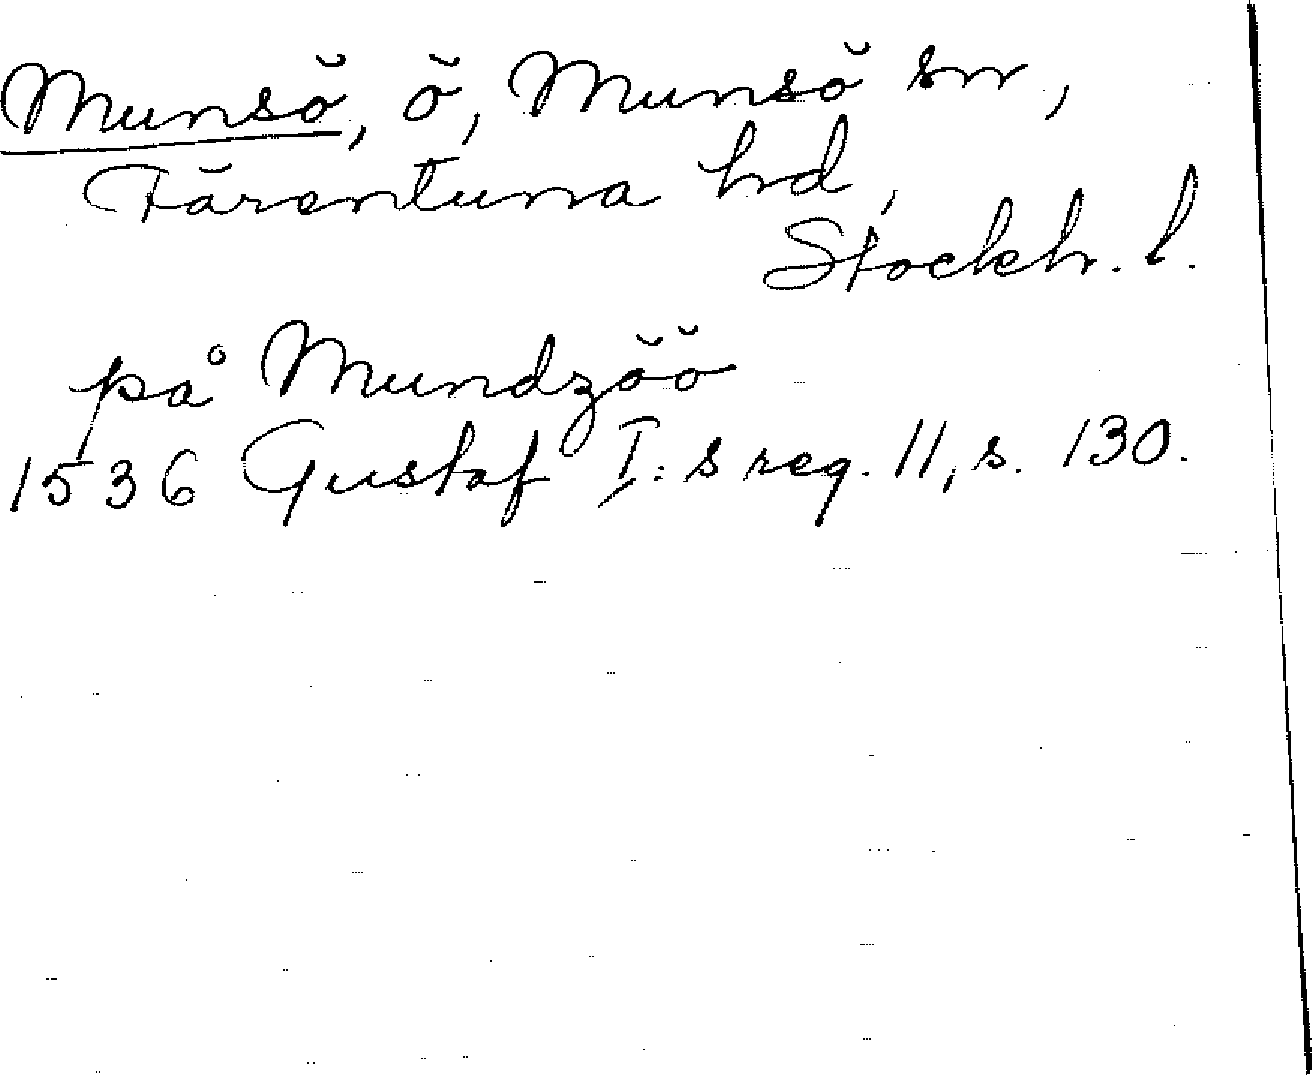 Munsö, ö, Munsö sn,
Färentuna hd,
Stockh. l.
på Mundzöö
1536 Gustaf I:s reg. 11, s. 130.